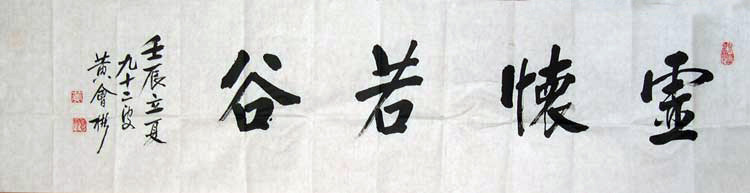 虛懷若谷
壬辰立夏
九十二叟
黄會彬